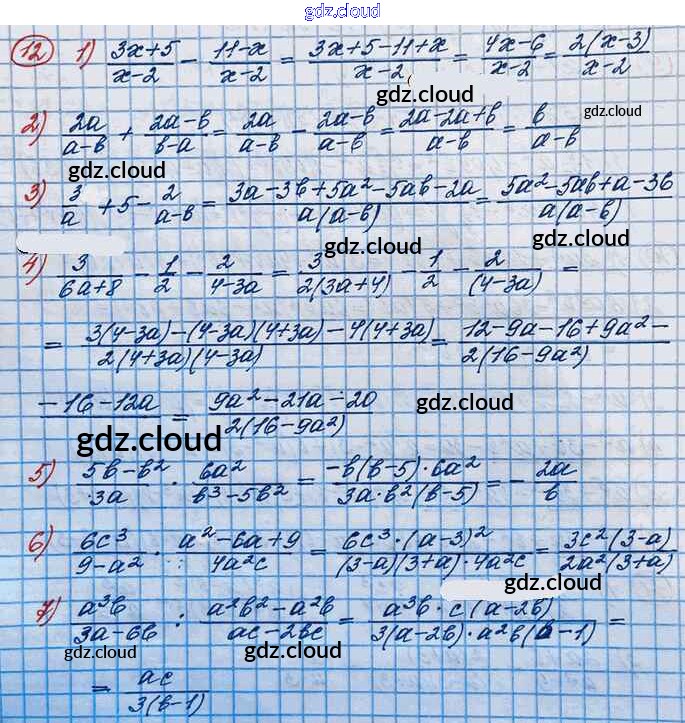 gdz.cloud
12) 1) (3x+5)/(x-2) - (11-x)/(x-2) = (3x+5-11+x)/(x-2) = (4x-6)/(x-2) = 2(x-3)/(x-2)
gdz.cloud
gdz.cloud
2) 2a/(a-b) + (2a-b)/(b-a) = 2a/(a-b) - (2a-b)/(a-b) = (2a-2a+b)/(a-b) = b/(a-b)
gdz.cloud
3) 3/a + 5 - 2/(a-b) = (3a-3b+5a²-5ab-2a)/(a(a-b)) = (5a²-5ab+a-3b)/(a(a-b))
gdz.cloud
gdz.cloud
4) 3/(6a+8) - 1/2 - 2/(4-3a) = 3/(2(3a+4)) - 1/2 - 2/(4-3a) =
= (3(4-3a)-(4-3a)(4+3a)-4(4+3a))/(2(4+3a)(4-3a)) = (12-9a-16+9a²-
-16-12a)/(2(16-9a²)) = (9a²-21a-20)/(2(16-9a²))
gdz.cloud
gdz.cloud
5) (5b-b²)/3a · 6a²/(b³-5b²) = (-b(b-5)·6a²)/(3a·b²(b-5)) = - 2a/b
6) 6c³/(9-a²) · (a²-6a+9)/(4a²c) = (6c³·(a-3)²)/((3-a)(3+a)·4a²c) = (3c²(3-a))/(2a²(3+a))
gdz.cloud
7) a³b/(3a-6b) : (a²b²-a²b)/(ac-2bc) = (a³b·c(a-2b))/(3(a-2b)·a²b(b-1)) =
gdz.cloud
gdz.cloud
= ac/(3(b-1))
gdz.cloud